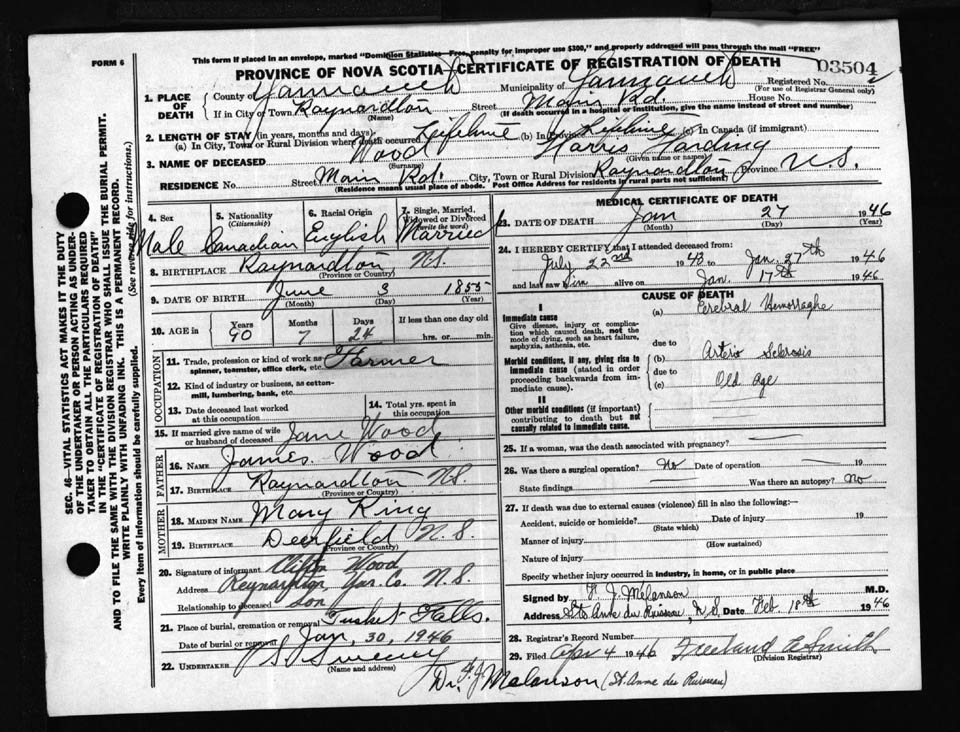 This form if placed in an envelope, marked "Dominion Statistics—Free, penalty for improper use $300," and properly addressed will pass through the mail "FREE"
FORM 6
PROVINCE OF NOVA SCOTIA—CERTIFICATE OF REGISTRATION OF DEATH
03504
1. PLACE OF DEATH County of Yarmouth Municipality of Yarmouth Registered No.
(For use of Registrar General only)
If in City or Town Raynardton Street Main Rd. House No.
(Name) (If death occurred in a hospital or institution, give the name instead of street and number)
2. LENGTH OF STAY (in years, months and days)
(a) In City, Town or Rural Division where death occurred Lifetime (b) In Province Lifetime (c) In Canada (if immigrant)
3. NAME OF DECEASED Wood Harris Harding
(Surname) (Given name or names)
RESIDENCE No. Street Main Rd. City, Town or Rural Division Raynardton Province N.S.
(Residence means usual place of abode. Post Office Address for residents in rural parts not sufficient)
4. Sex 5. Nationality (Citizenship) 6. Racial Origin 7. Single, Married, Widowed or Divorced (write the word)
Male Canadian English Married
8. BIRTHPLACE Raynardton N.S.
(Province or Country)
9. DATE OF BIRTH June 3 1855
(Month) (Day) (Year)
10. AGE in Years Months Days If less than one day old
90 7 24 hrs. or min.
OCCUPATION
11. Trade, profession or kind of work as spinner, teamster, office clerk, etc. Farmer
12. Kind of industry or business, as cotton-mill, lumbering, bank, etc.
13. Date deceased last worked at this occupation
14. Total yrs. spent in this occupation
15. If married give name of wife or husband of deceased Jane Wood
FATHER
16. NAME James Wood
17. BIRTHPLACE Raynardton N.S.
(Province or Country)
MOTHER
18. MAIDEN NAME Mary King
19. BIRTHPLACE Deerfield N.S.
(Province or Country)
20. Signature of informant Clifton Wood
Address Reynardton Yar. Co. N.S.
Relationship to deceased Son
21. Place of burial, cremation or removal Tusket Falls.
Date of burial or removal Jan, 30, 1946
22. UNDERTAKER S Sweeney
(Name and address)
MEDICAL CERTIFICATE OF DEATH
23. DATE OF DEATH Jan 27 1946
(Month) (Day) (Year)
24. I HEREBY CERTIFY that I attended deceased from:
July 22nd 1943 to Jan. 27th 1946
and last saw him alive on Jan. 17th 1946
CAUSE OF DEATH
I
Immediate cause
Give disease, injury or complication which caused death, not the mode of dying, such as heart failure, asphyxia, asthenia, etc.
(a) Cerebral Hemorraghe
due to
Morbid conditions, if any, giving rise to immediate cause (stated in order proceeding backwards from immediate cause).
(b) Arterio Sclerosis
due to
(c) Old Age
II
Other morbid conditions (if important) contributing to death but not causally related to immediate cause.
25. If a woman, was the death associated with pregnancy? —
26. Was there a surgical operation? No Date of operation — 19
State findings Was there an autopsy? No
27. If death was due to external causes (violence) fill in also the following:—
Accident, suicide or homicide? Date of injury 19
(State which)
Manner of injury
(How sustained)
Nature of injury
Specify whether injury occurred in industry, in home, or in public place
Signed by F. J. Melanson M.D.
Address Ste Anne du Ruisseau, N.S. Date Feb 18th 1946
28. Registrar's Record Number
29. Filed Apr 4 1946 Freeland E Smith
(Division Registrar)
Dr. F. J. Melanson (St. Anne des Ruisseau)
SEC. 46—VITAL STATISTICS ACT MAKES IT THE DUTY
OF THE UNDERTAKER OR PERSON ACTING AS UNDERTAKER TO OBTAIN ALL THE PARTICULARS REQUIRED
IN THE "CERTIFICATE OF REGISTRATION OF DEATH"
AND TO FILE THE SAME WITH THE DIVISION REGISTRAR WHO SHALL ISSUE THE BURIAL PERMIT.
WRITE PLAINLY WITH UNFADING INK. THIS IS A PERMANENT RECORD.
Every item of information should be carefully supplied. (See reverse side for instructions.)